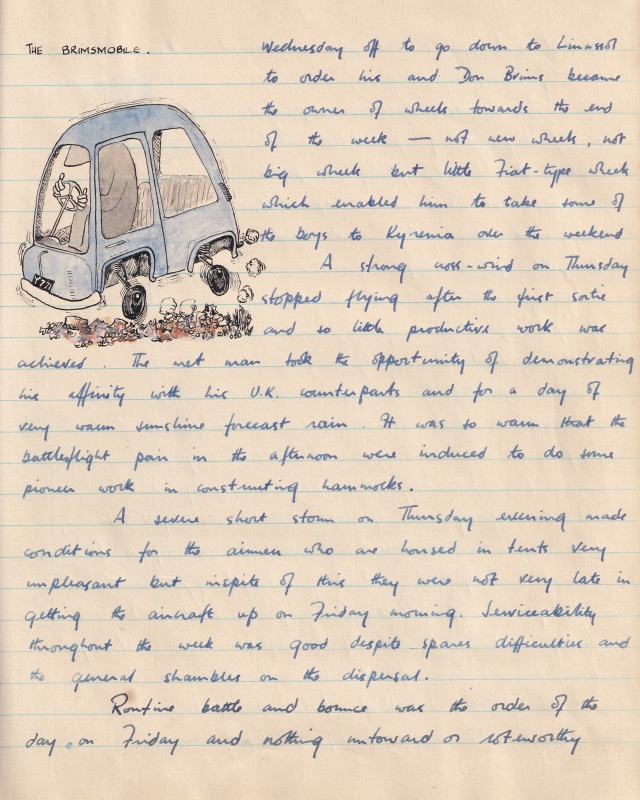 THE BRIMSMOBILE.
Wednesday off to go down to Limassol
to order his and Don Brims became
the owner of wheels towards the end
of the week — not new wheels, not
big wheels but little Fiat-type wheels
which enabled him to take some of
the boys to Kyrenia over the weekend
A strong cross-wind on Thursday
stopped flying after the first sortie
and so little productive work was
achieved. The met man took the opportunity of demonstrating
his affinity with his U.K. counterparts and for a day of
very warm sunshine forecast rain. It was so warm that the
battleflight pair in the afternoon were induced to do some
pioneer work in constructing hammocks.
A severe short storm on Thursday evening made
conditions for the airmen who are housed in tents very
unpleasant but inspite of this they were not very late in
getting the aircraft up on Friday morning. Serviceability
throughout the week was good despite spares difficulties and
the general shambles on the dispersal.
Routine battle and bounce was the order of the
day on Friday and nothing untoward or noteworthy